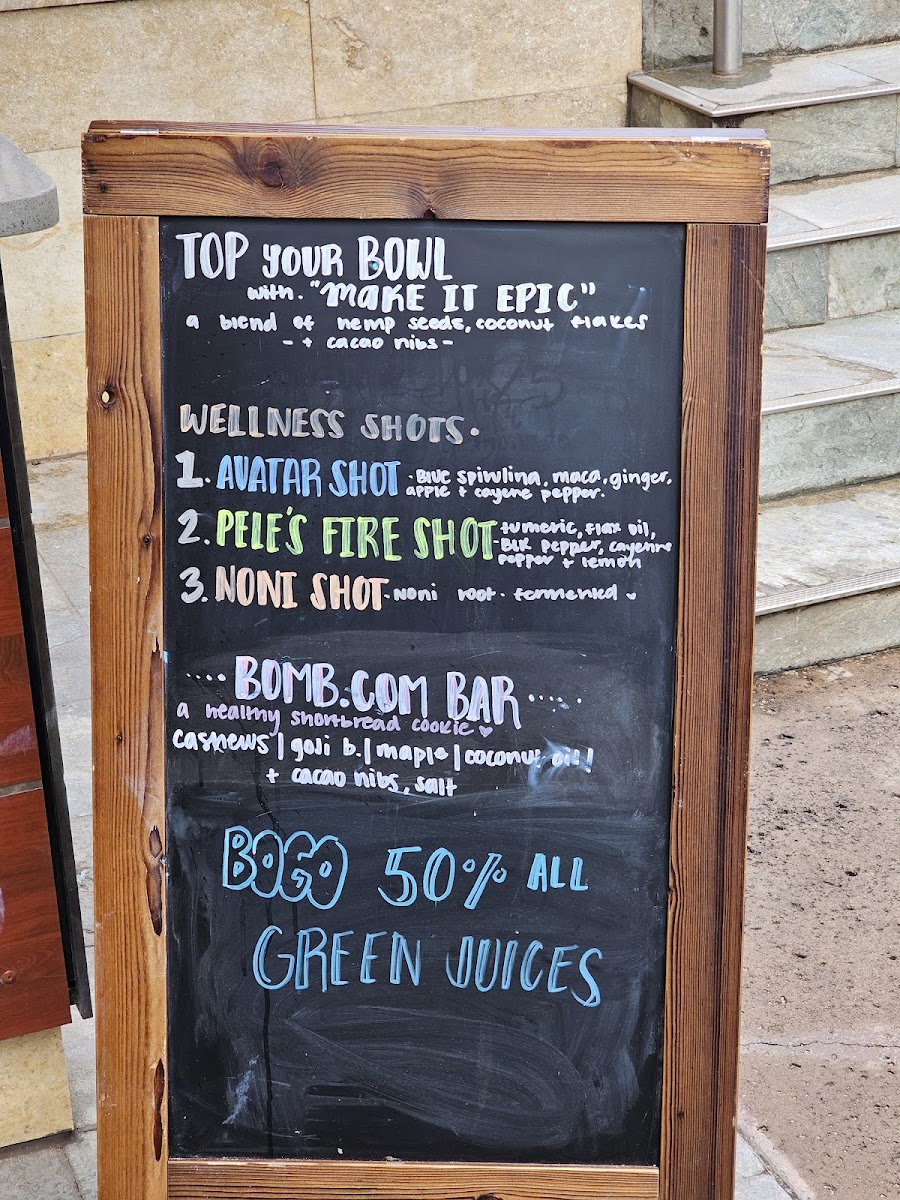 TOP YOUR BOWL
with. "MAKE IT EPIC"
a blend of hemp seeds, coconut flakes
- + cacao nibs -
WELLNESS SHOTS.
1. AVATAR SHOT - BLUE spirulina, maca, ginger,
apple + cayene pepper.
2. PELE'S FIRE SHOT - tumeric, flax oil,
BLK pepper, cayenne
pepper + lemon
3. NONI SHOT - Noni root - fermented
.... BOMB.COM BAR .....
a healthy shortbread cookie ♥
cashews | goji b. | maple | coconut oil |
+ cacao nibs, salt
BOGO 50% ALL
GREEN JUICES